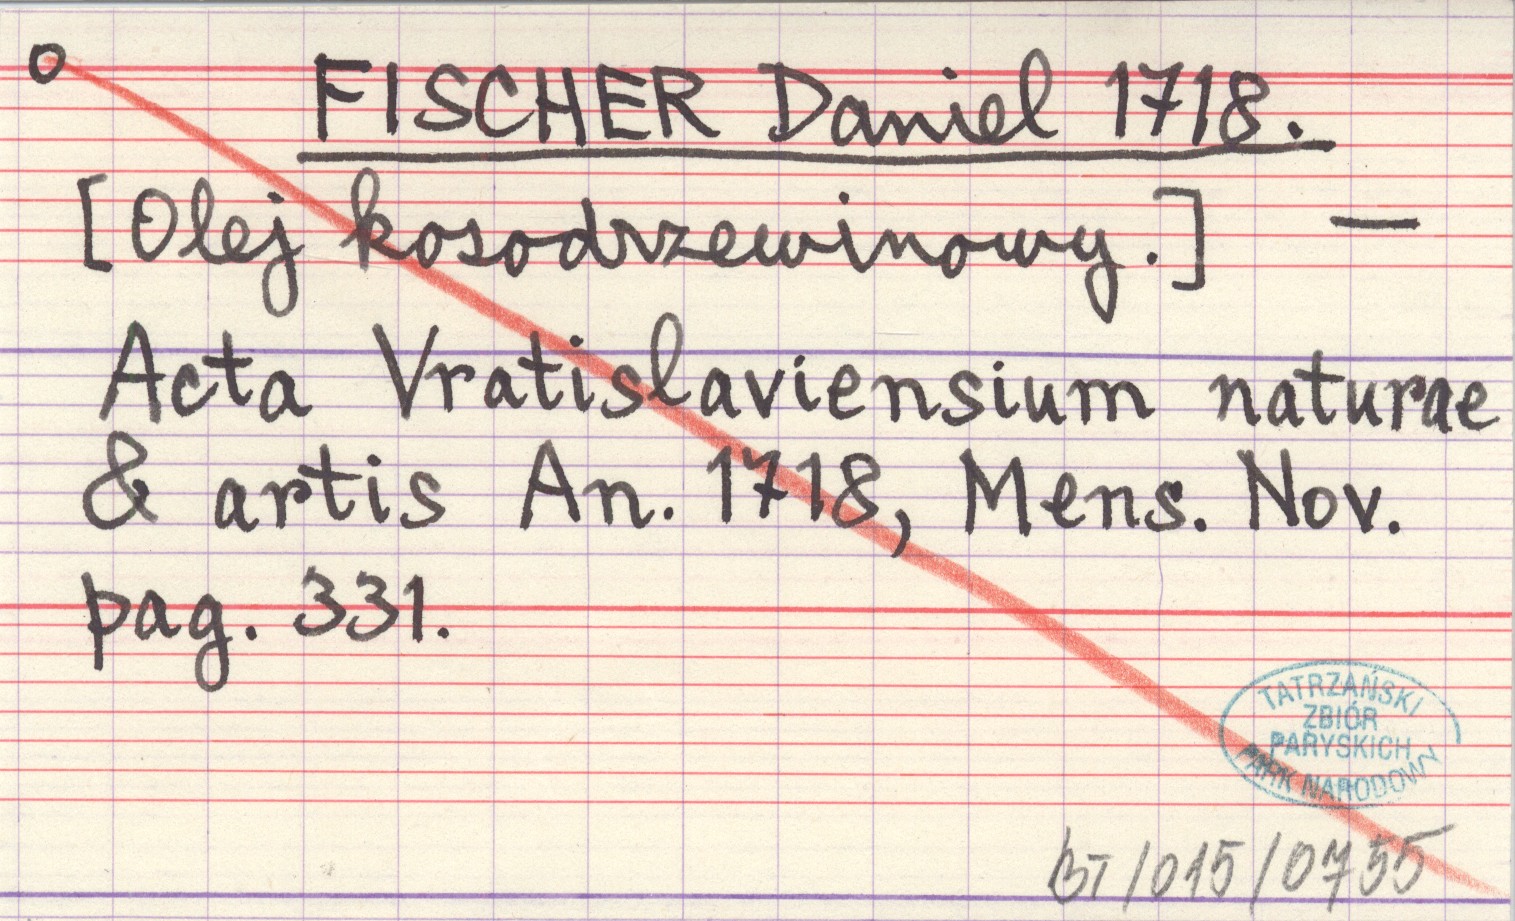 FISCHER Daniel 1718.
[Olej kosodrzewinowy.] —
Acta Vratislaviensium naturae
& artis An. 1718, Mens. Nov.
pag. 331.
TATRZAŃSKI
ZBIÓR
PARYSKICH
PARK NARODOWY
BT/015/0755